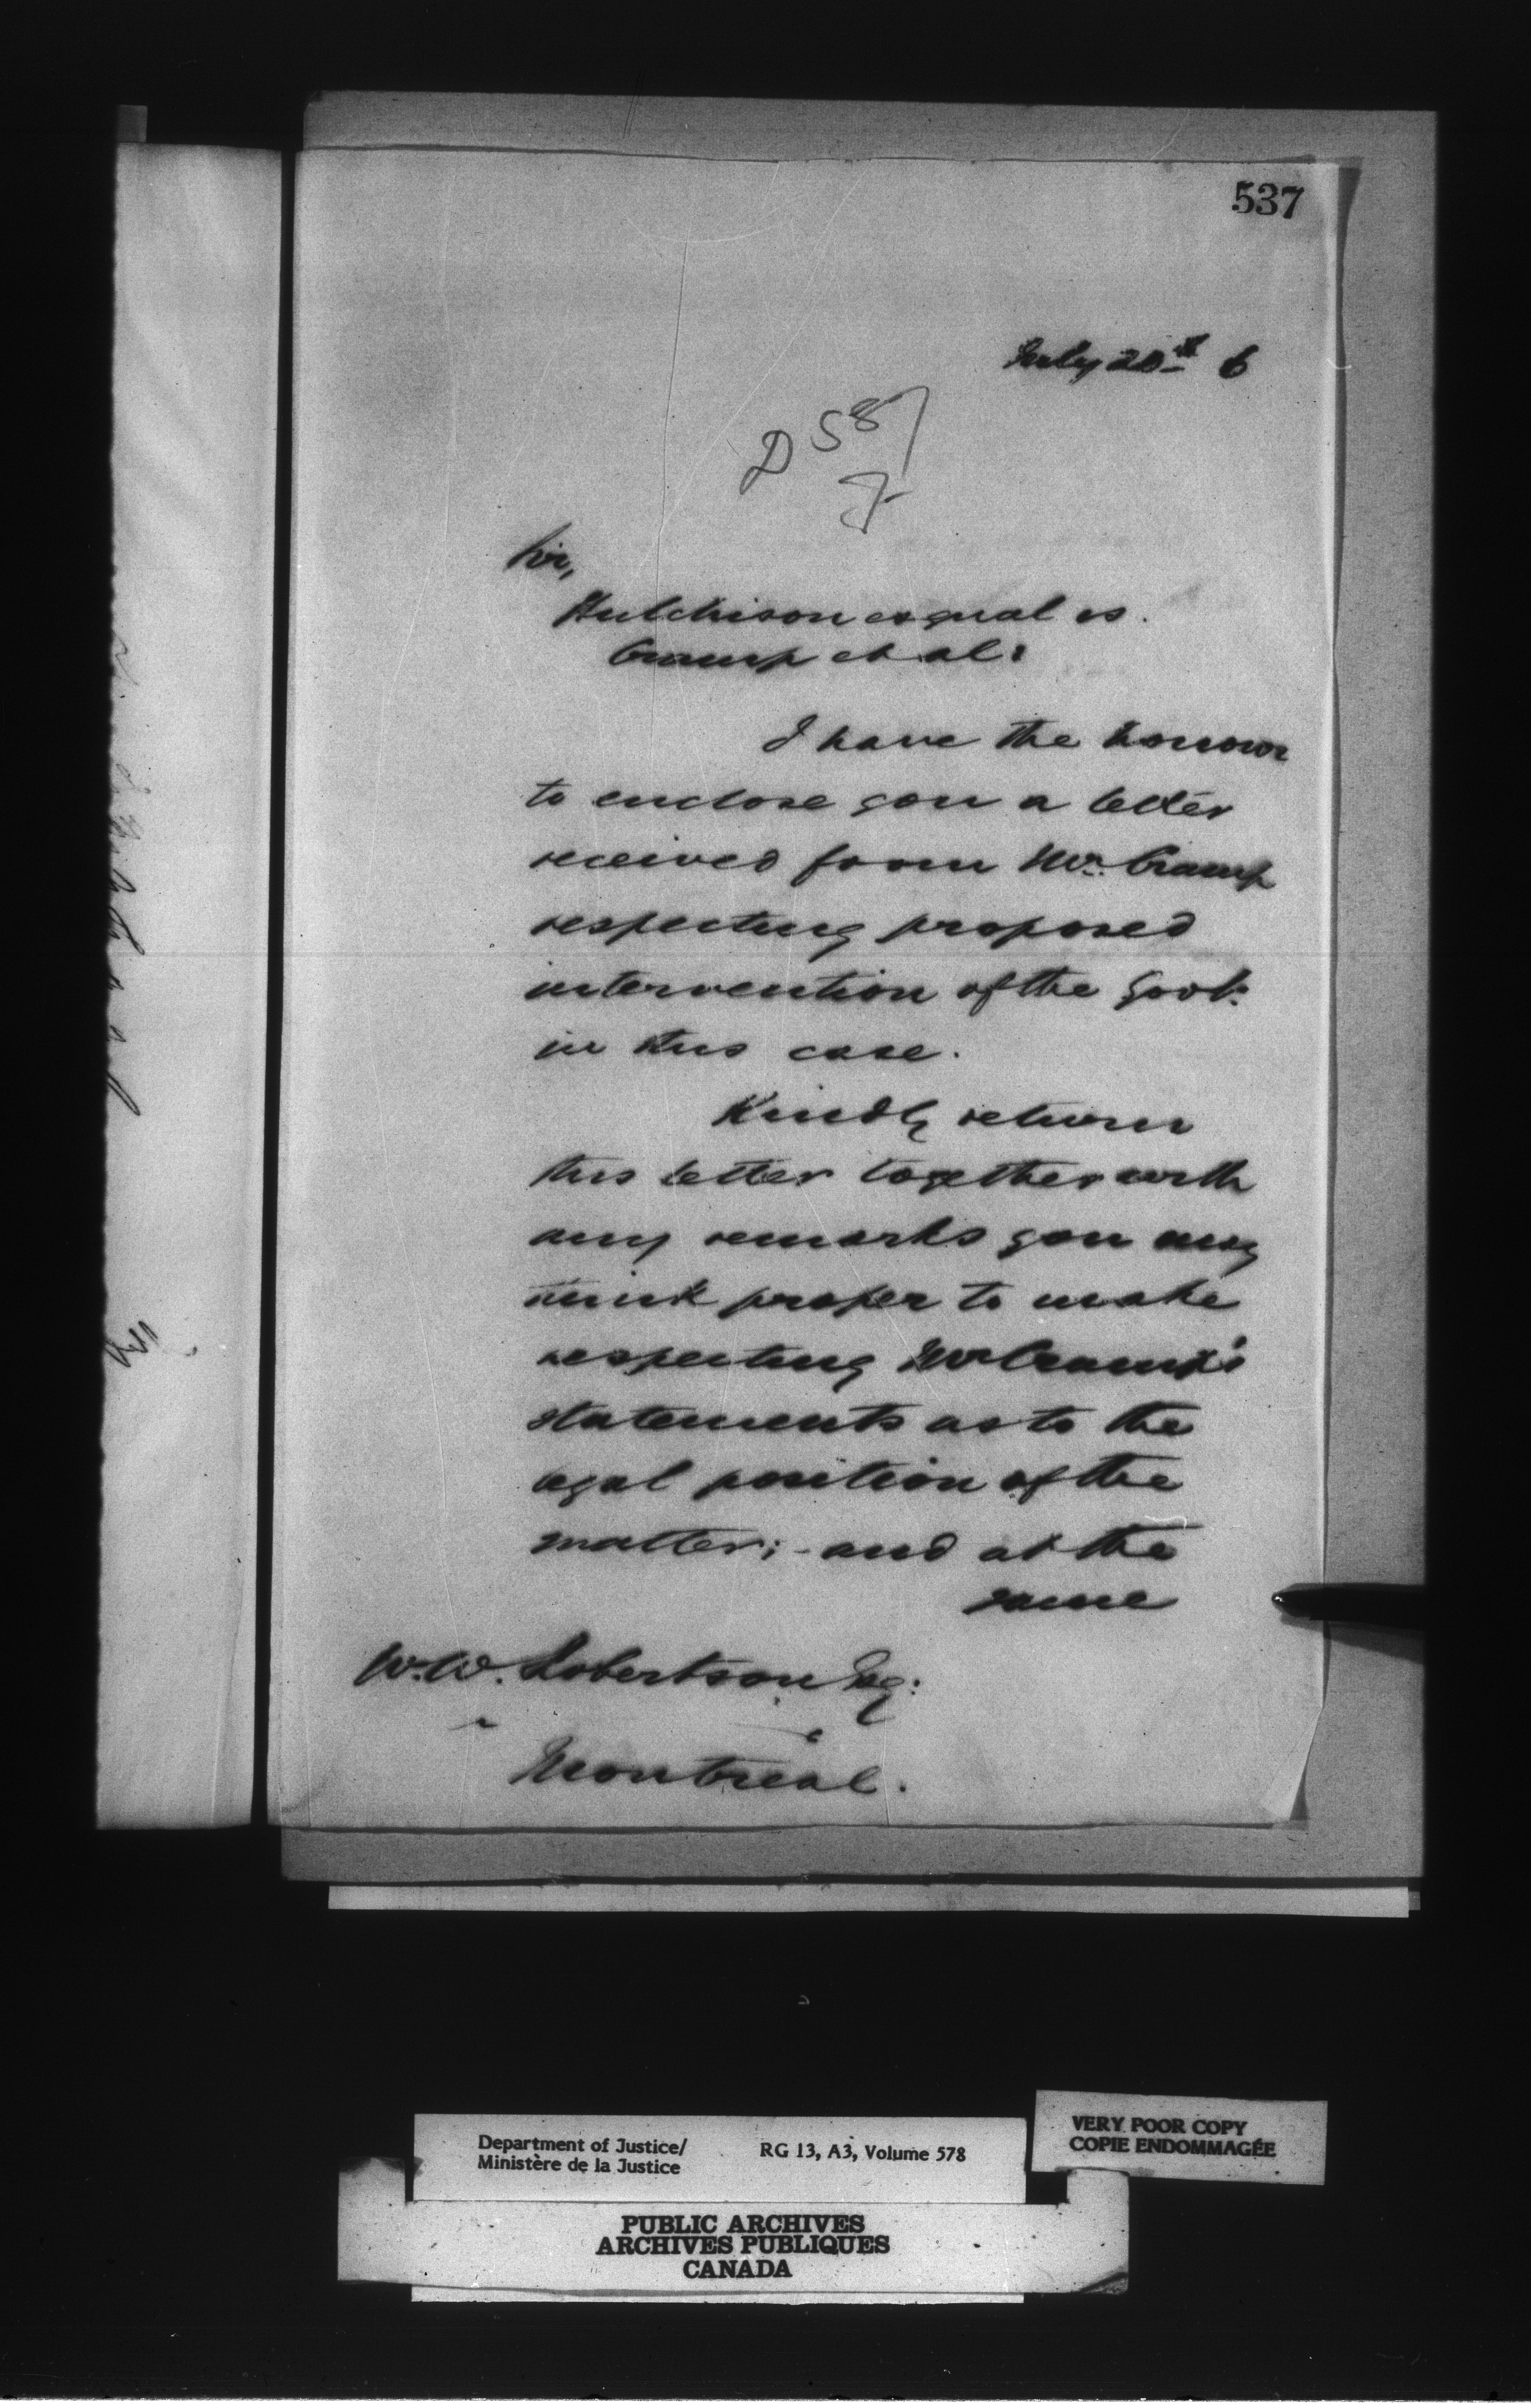 537
July 20th 6
D 587
J
Sir,
Hutchison es qual vs.
Cramp et al:
I have the honour
to enclose you a letter
received from Mr. Cramp
respecting proposed
intervention of the Govt:
in this case.
Kindly return
this letter together with
any remarks you may
think proper to make
respecting Mr Cramp's
statements as to the
legal position of the
matter; - and at the
same
W. W. Robertson Esq:
Montreal.
Department of Justice/
Ministère de la Justice
RG 13, A3, Volume 578
VERY POOR COPY
COPIE ENDOMMAGÉE
PUBLIC ARCHIVES
ARCHIVES PUBLIQUES
CANADA